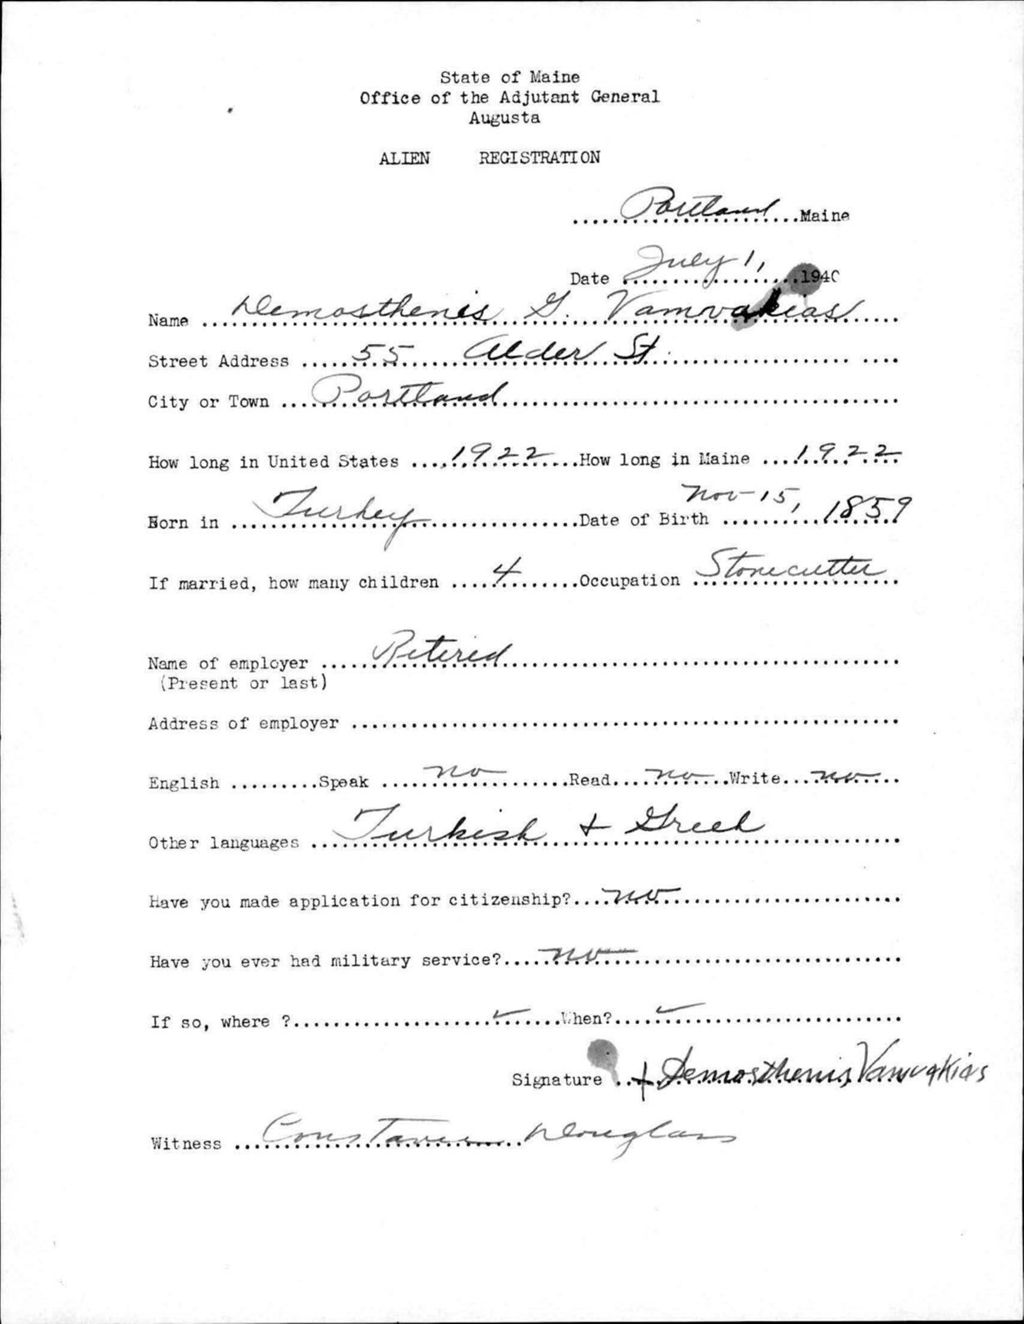 State of Maine
Office of the Adjutant General
Augusta
ALIEN REGISTRATION
Portland Maine
Date July 1, 1940
Name Demosthenis G. Vamvakias
Street Address 55 Alder St.
City or Town Portland
How long in United States 1922 How long in Maine 1922
Born in Turkey Date of Birth Nov-15, 1859
If married, how many children 4 Occupation Stonecutter
Name of employer Retired
(Present or last)
Address of employer
English Speak no Read no Write no
Other languages Turkish + Greek
Have you made application for citizenship? no
Have you ever had military service? no
If so, where ? ✓ When? ✓
Signature + Demosthenis Vamvakias
Witness Douglass